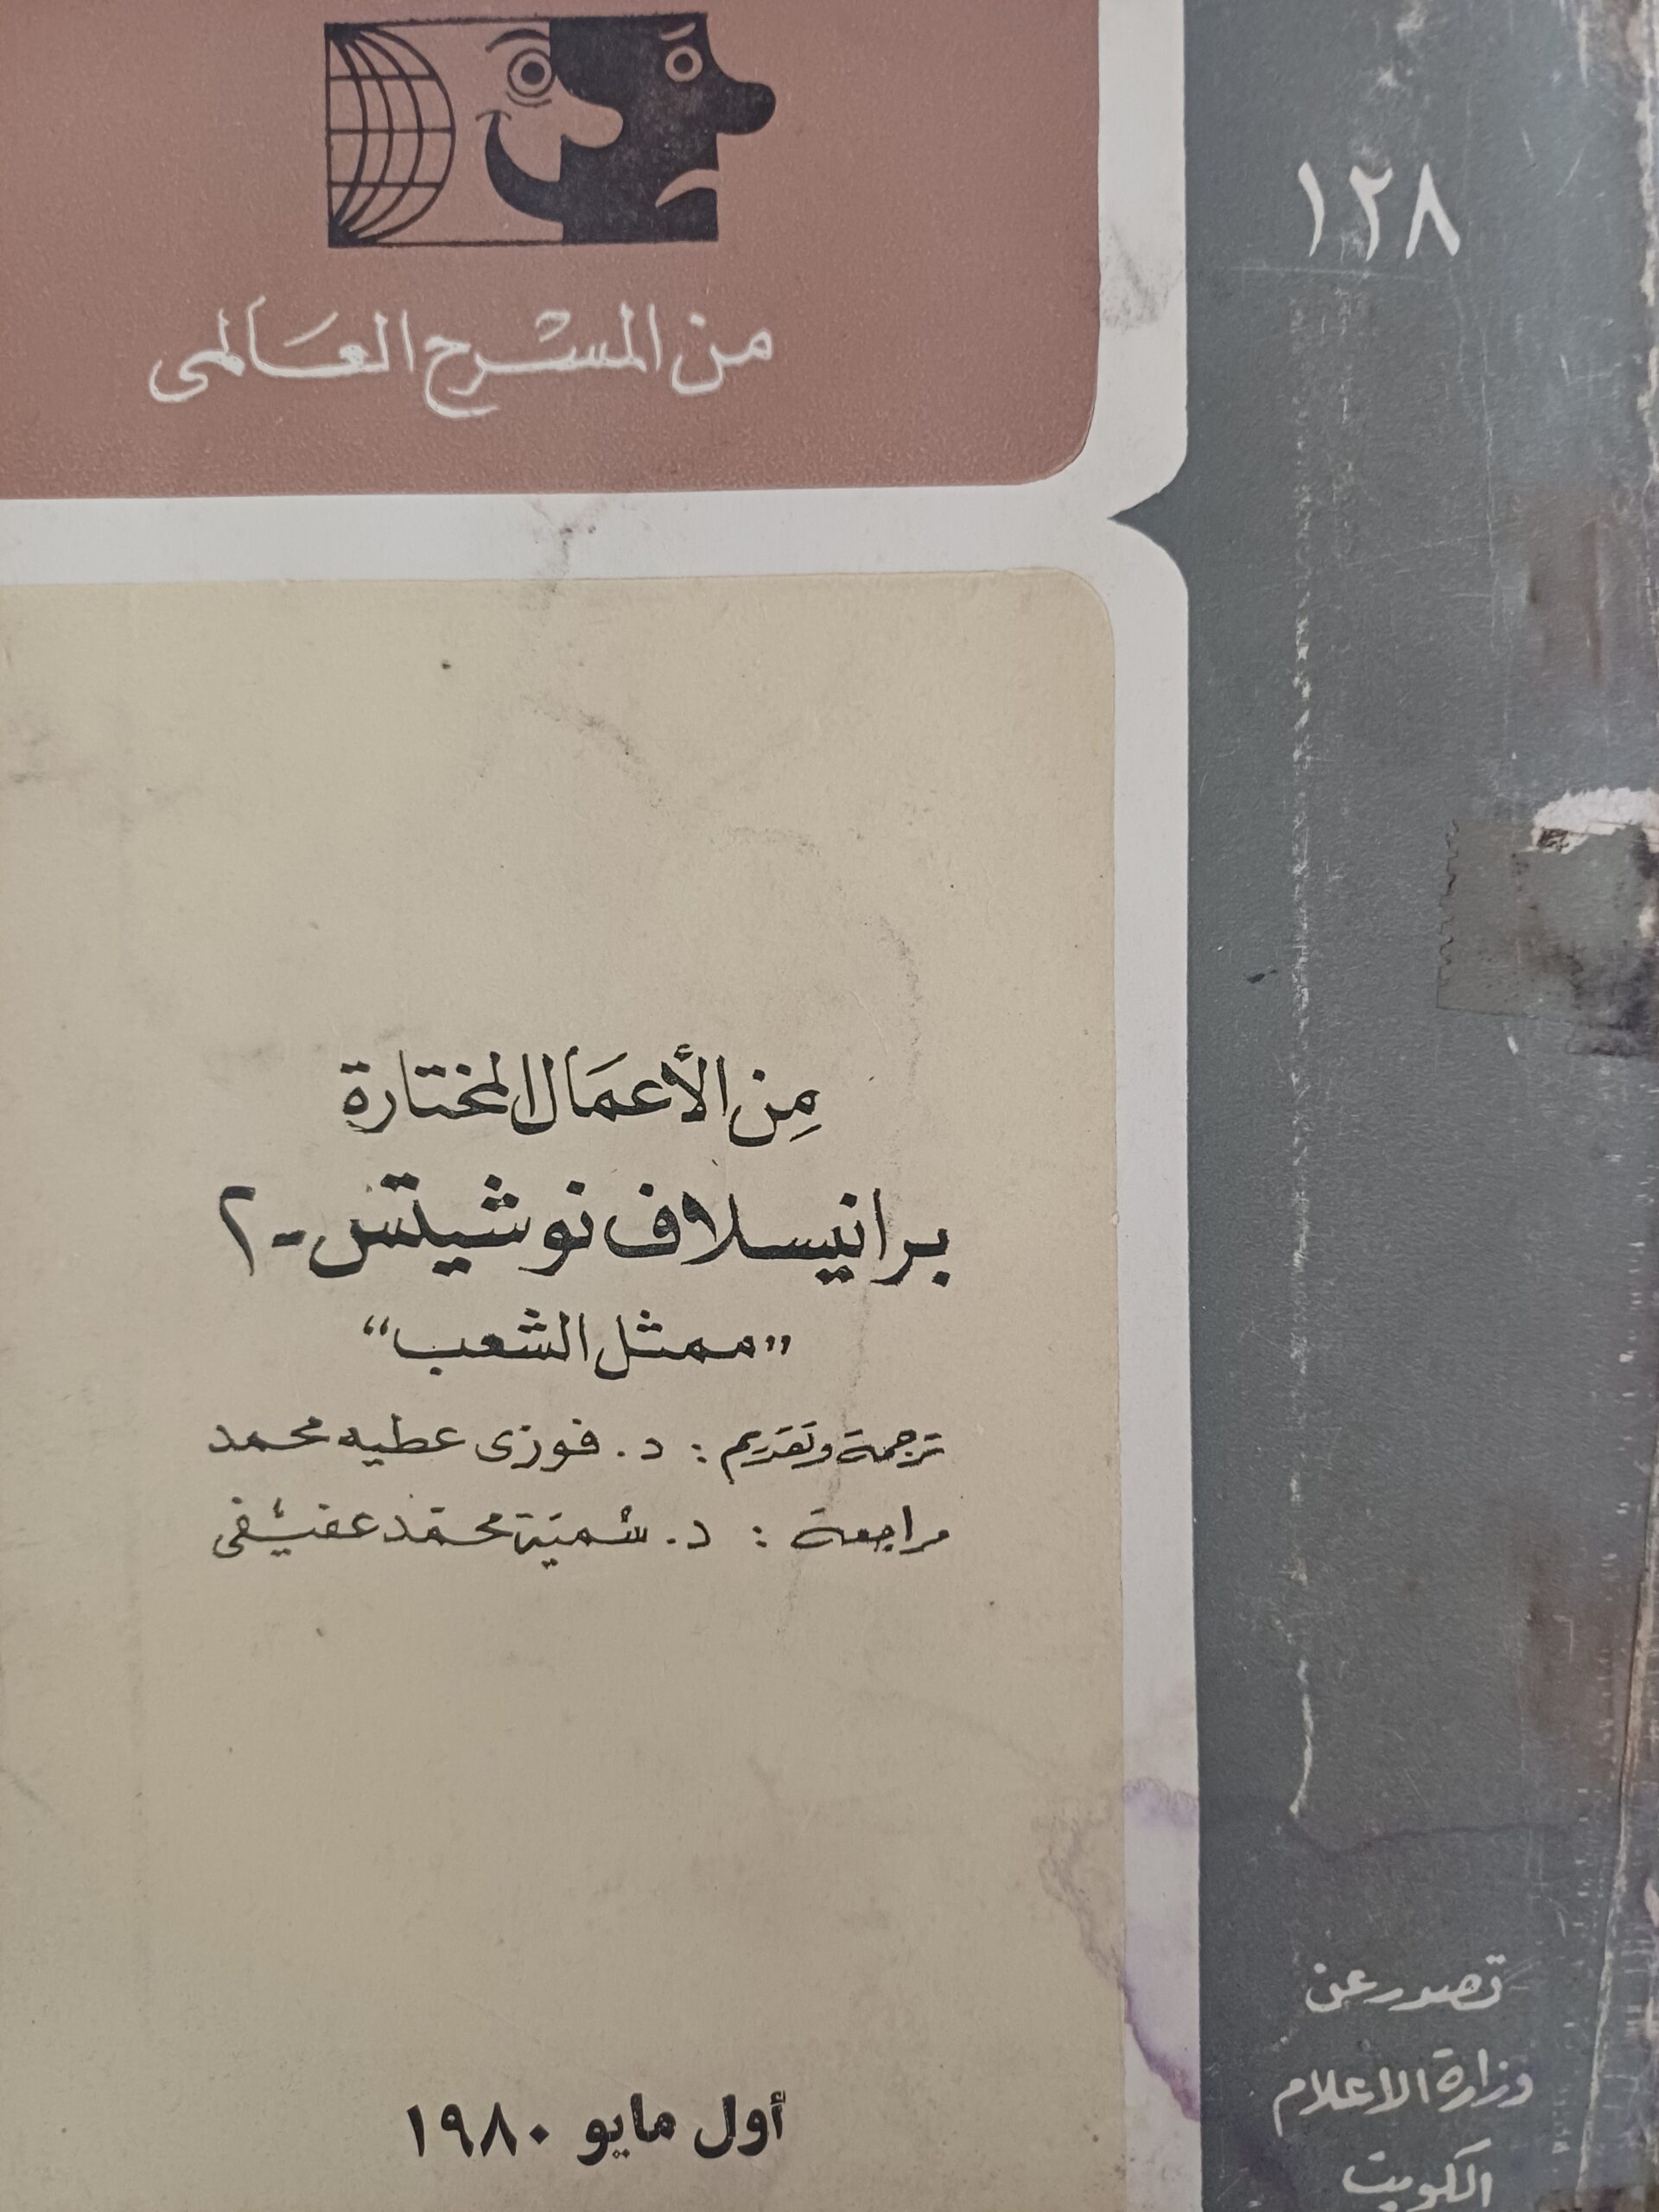 ١٢٨
من المسرح العالمى
من الأعمال المختارة
برانيسلاف نوشيتس - ٢
"ممثل الشعب"
ترجمة وتقديم : د. فوزى عطيه محمد
مراجعة : د. سمية محمد عفيفى
أول مايو ١٩٨٠
تصدر عن
وزارة الاعلام
الكويت